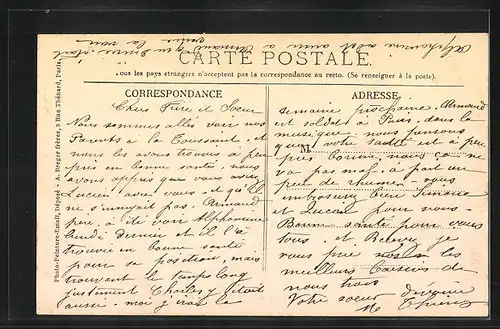 CARTE POSTALE
Tous les pays etrangers n'acceptent pas la correspondance au recto. (Se renseigner à la poste).
CORRESPONDANCE
Chers Frère et Sœur
Nous sommes allés voir nos
Parents a la Toussaint et
nous les avons trouvés a peu
près en bonne santé nous
avons appris que vous aviez
Lucien avec vous et qu'il
ne s'ennuyait pas. Armand
peu, a été voir Alphonsine
Lundi Dernier et il l'a
trouvée en bonne santé
pour sa position, mais
trouvant le temps long
justement Charles y était
aussi. moi j'irai la
ADRESSE
semaine prochaine. Armand
est soldat à Paris, dans la
musique nous pensons
M
que votre santé est à peu
près bonne, nous ça ne
va pas mal, a part un
peu de rhume. vous
embrasserez bien Simone
et Lucien pour nous
Bonne santé pour vous
tous. et Recevez je
vous prie
meilleurs Baisers de
nous trois
Votre soeur
Photo-Peinture-Email, Déposé - A. Breger frères, 9 Rue Thénard, Paris.